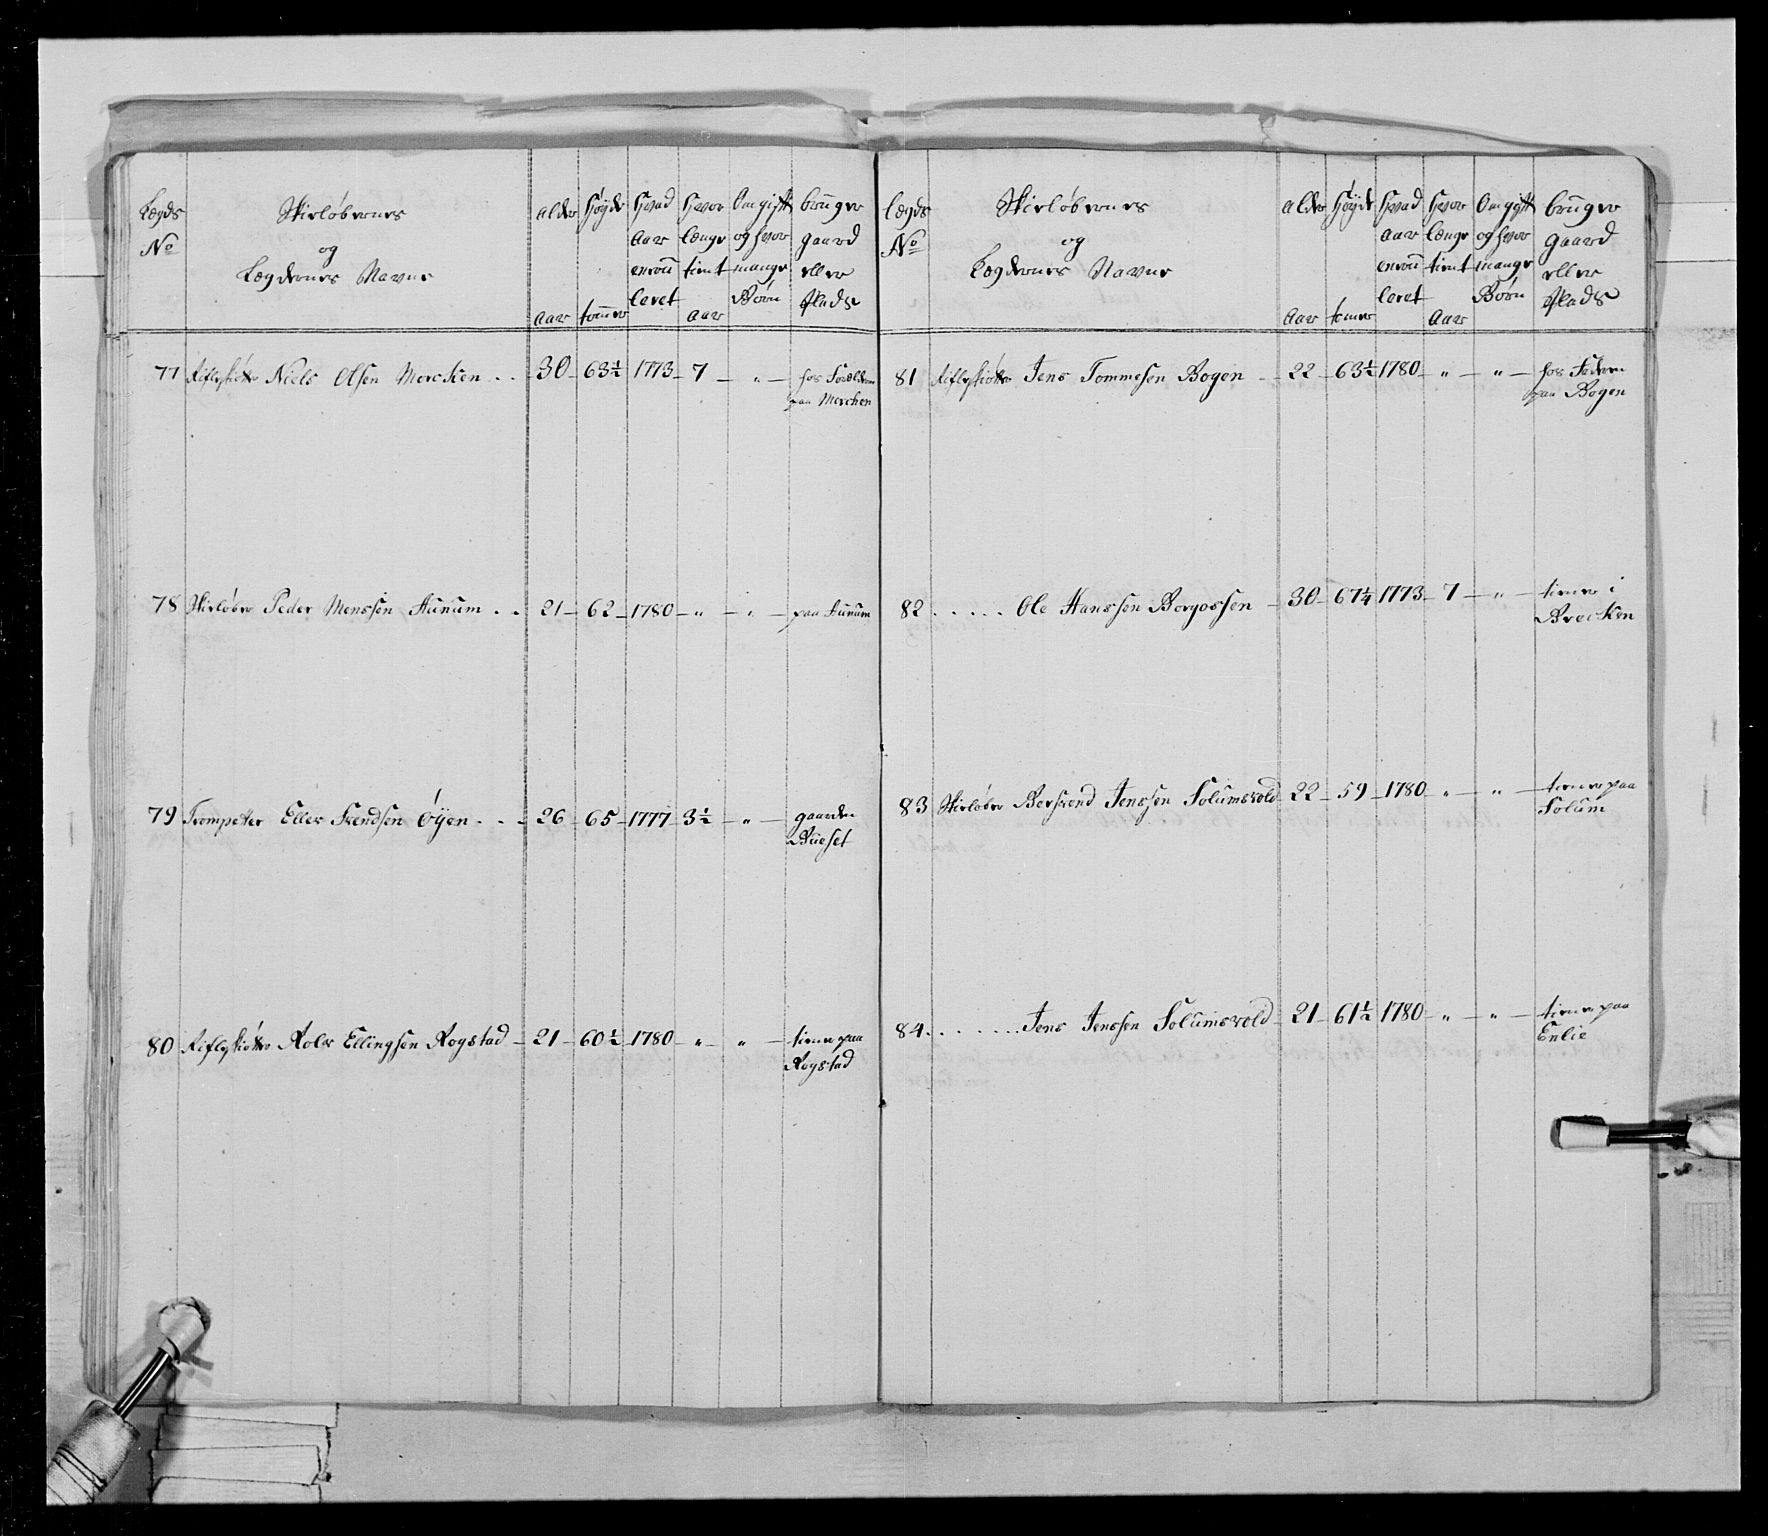 Lægds No | Skieløbernes og Lægdernes Navne | alder Aar | Høyde tomer | Hvad Aar enroulleret | Hvor længe tient Aar | Om gift og hvor mange Børn | bruger gaard eller Plads
77 Riflskiötter Niels Olsen Mercken . . 30 – 63½ 1773 – 7 – " – hos Forældrene paa Merchen
78 Skieløber Peder Monssen Aunum . . 21 – 62 – 1780 – " – " – paa Aunum
79 Trompetter Eller Svendsen Öyen . . . 26 – 65 – 1777 – 3½ – " – gaarden Bueset
80 Riflskiötter Roler Ellingsen Rogstad – 21 – 60½ – 1780 – " – " – tiener paa Rogstad
Lægds No | Skieløbernes og Lægdernes Navne | alder Aar | Høyde tomer | Hvad Aar enroulleret | Hvor længe tient Aar | Om gift og hvor mange Børn | bruger gaard eller Plads
81 Riflskiötter Jens Tommesen Bogen – 22 – 63½ 1780 – " – " – hos Faderen paa Bogen
82 . . . . . Ole Hanssen Borgossen – 30 – 67¼ 1773 – 7 – " – tiener i Brecken
83 Skieløber Bersvend Jenssen Solumsvold – 22 – 59 – 1780 – " – " – tiener paa Solum
84 . . . . . . . Jens Jenssen Solumsvold – 21 – 61½ 1780 – " – " – tiener paa Enlie